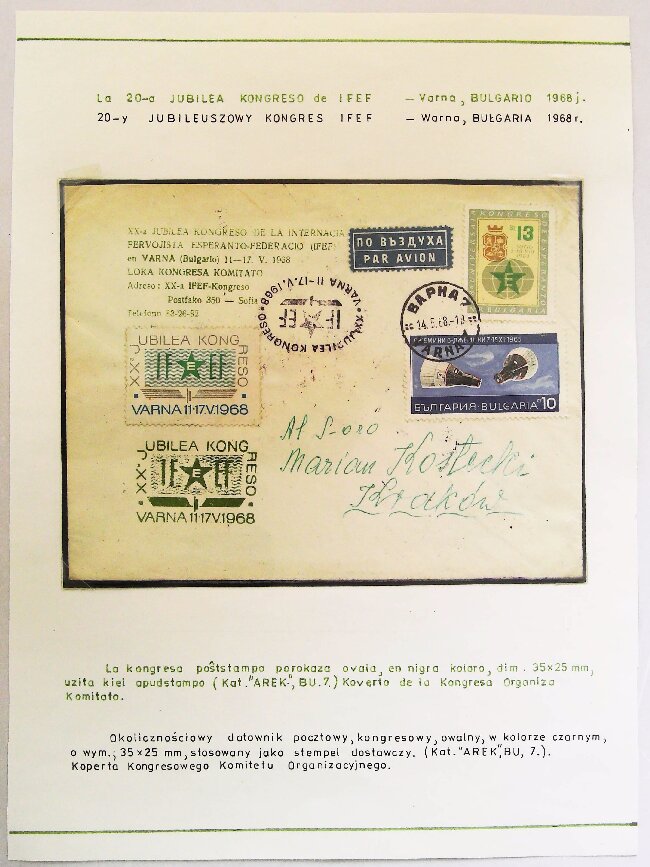 La 20-a JUBILEA KONGRESO de IFEF — Varna, BULGARIO 1968j.
20-y JUBILEUSZOWY KONGRES IFEF — Warna, BUŁGARIA 1968r.
XX-a JUBILEA KONGRESO DE LA INTERNACIA
FERVOJISTA ESPERANTO-FEDERACIO (IFEF)
en VARNA (Bulgario) 11—17. V. 1968
LOKA KONGRESA KOMITATO
Adreso: XX-a IFEF-Kongreso
Poŝtfako 350 — Sofia
Telefono
ПО ВЪЗДУХА
PAR AVION
KONGRESO
13
BULGARIA
ВАРНА 7
14.5.68.-18
VARNA
БЪЛГАРИЯ · BULGARIA 10
XX JUBILEA KONGRESO · VARNA 11-17.V.1968
IFEF
XX. JUBILEA KONGRESO
IFEF
VARNA 11-17.V.1968
XX. JUBILEA KONGRESO
IFEF
VARNA 11-17.V.1968
Al S-oro
Marian Kostecki
Kraków
La kongresa poŝtstampo porokaza ovala, en nigra koloro, dim. 35×25 mm,
uzita kiel apudstampo (Kat. "AREK", BU.7.) Koverto de la Kongresa Organiza
Komitato.
Okolicznościowy datownik pocztowy, kongresowy, owalny, w kolorze czarnym,
o wym.; 35×25 mm, stosowany jako stempel dostawczy. (Kat. "AREK", BU, 7.).
Koperta Kongresowego Komitetu Organizacyjnego.